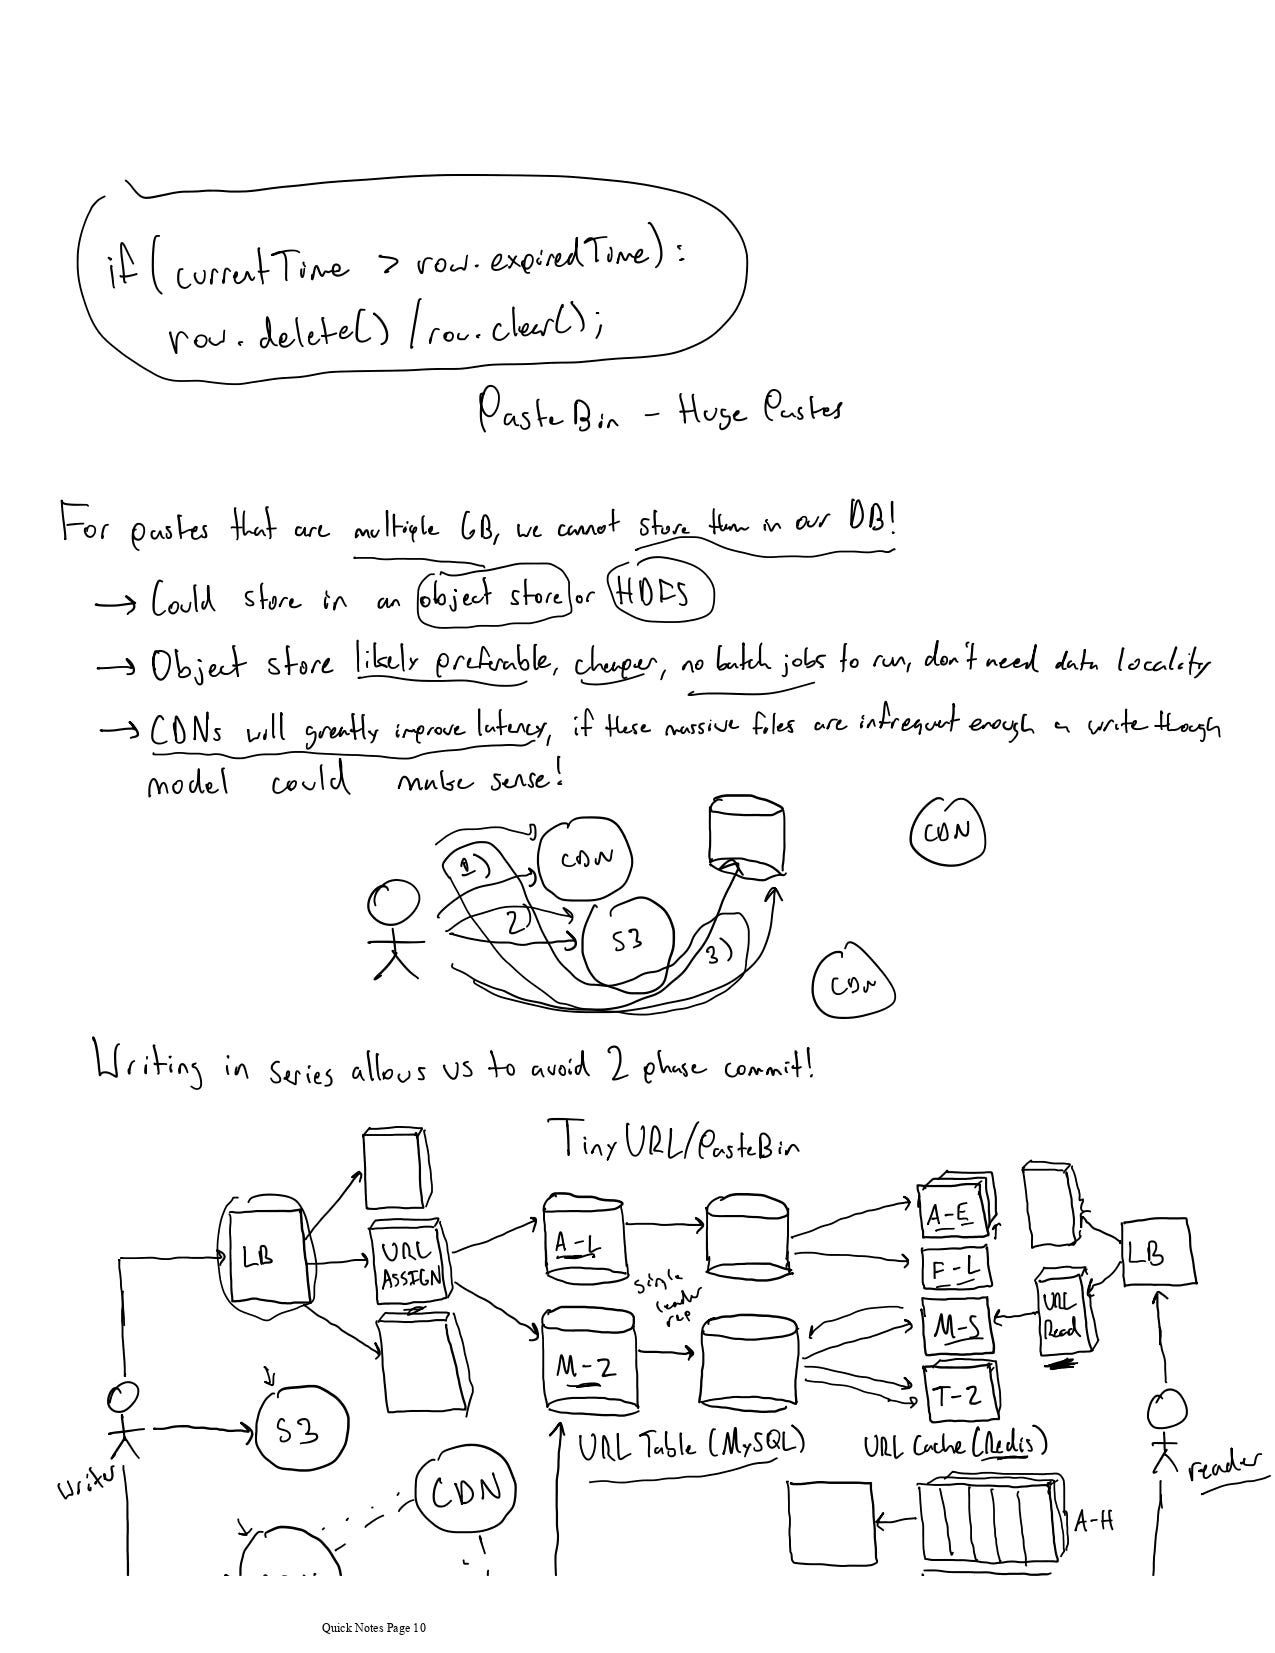 if (currentTime > row.expiredTime):
row.delete() / row.clear();
PasteBin - Huge Pastes
For pastes that are multiple GB, we cannot store them in our DB!
→ Could store in an object store or HDFS
→ Object store likely preferable, cheaper, no batch jobs to run, don't need data locality
→ CDNs will greatly improve latency, if these massive files are infrequent enough a write though
model could make sense!
CDN
CDN
1)
2)
S3
3)
CDN
Writing in series allows us to avoid 2 phase commit!
TinyURL/PasteBin
LB
URL
ASSIGN
A-L
single
leader
rep
M-Z
A-E
F-L
M-S
T-Z
URL
Read
LB
S3
writer
URL Table (MySQL)
URL Cache (Redis)
reader
CDN
A-H
Quick Notes Page 10